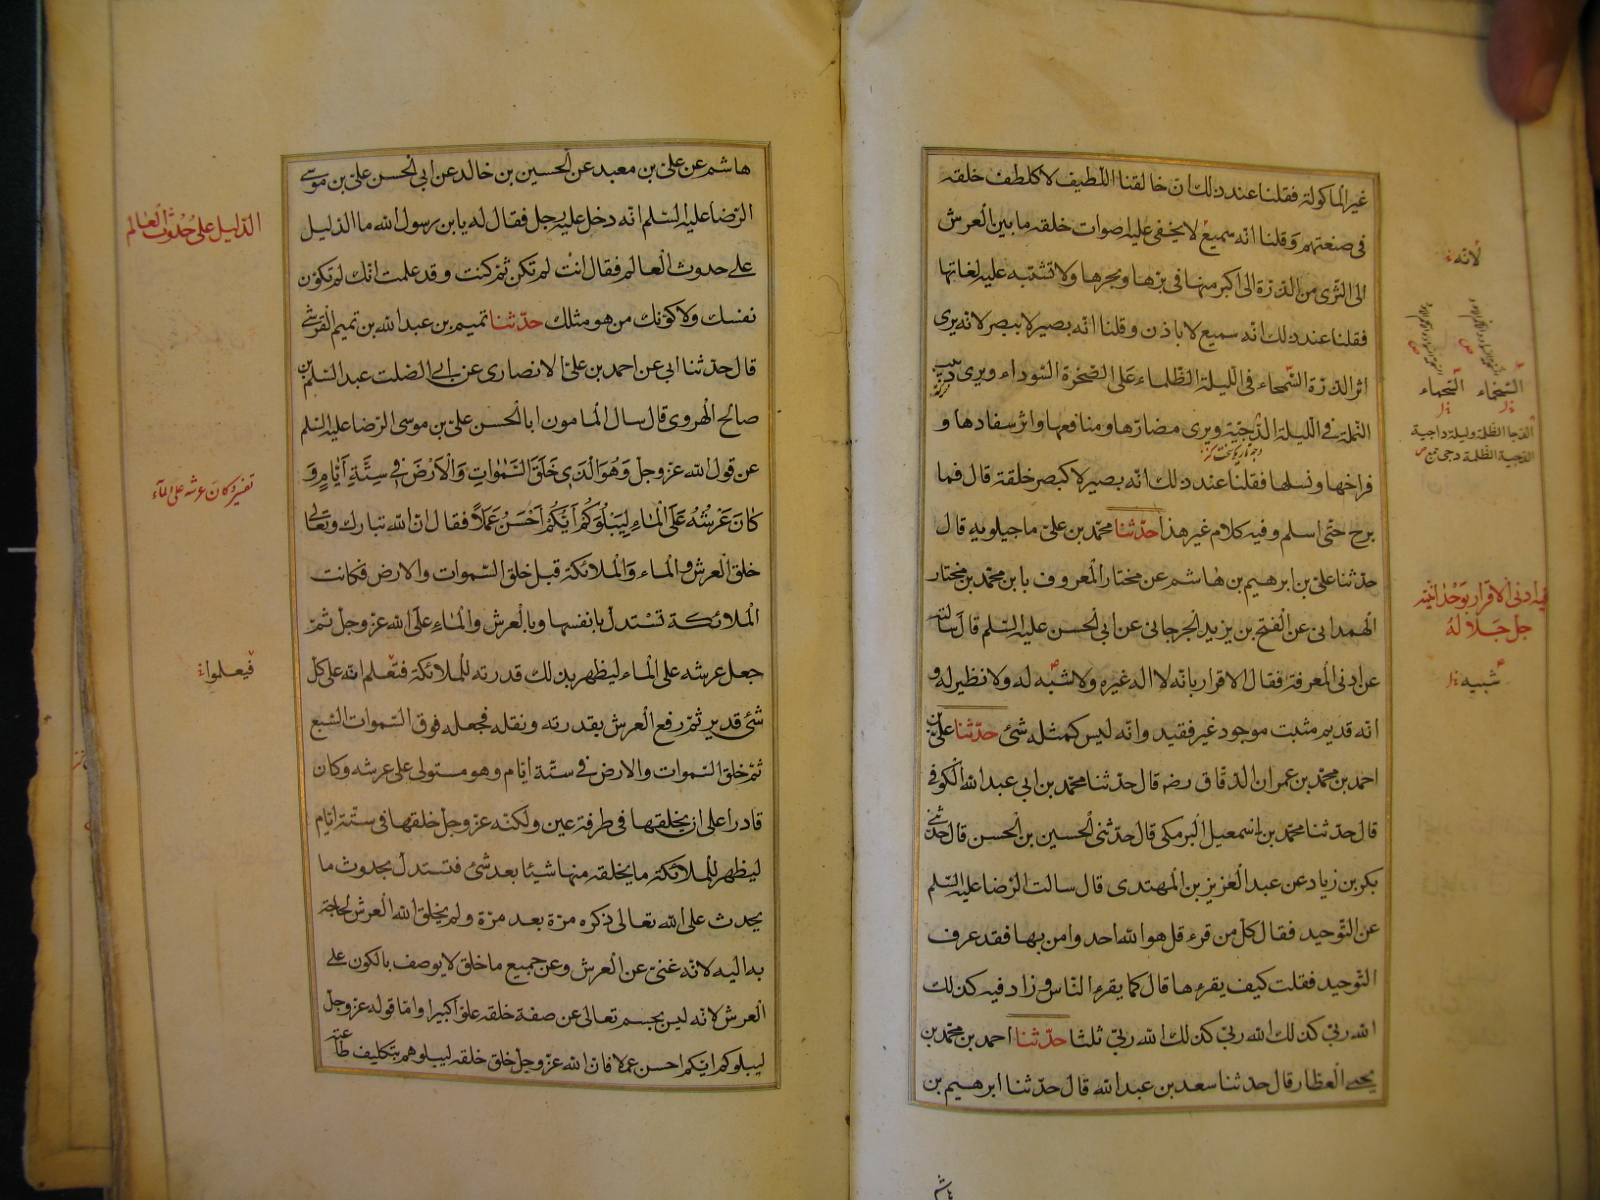 غير المأكولة فقلنا عند ذلك ان خالقنا اللطيف لا كلطف خلقه
فى صنعتهم وقلنا انه سميع لا يخفى عليه اصوات خلقه ما بين العرش
الى الثرى من الذرة الى اكبر منها فى برها وبحرها ولا تشتبه عليه لغاتها
فقلنا عند ذلك انه سميع لا باذن وقلنا انه بصير لا ببصر لانه يرى
اثر الذرة السحماء فى الليلة الظلماء على الصخرة السوداء ويرى دبيب
النملة فى الليلة الدجية ويرى مضارها ومنافعها واثر سفادها و
فراخها ونسلها فقلنا عند ذلك انه بصير لا كبصر خلقه قال فما
برح حتى اسلم وفيه كلام غير هذا حدثنا محمد بن على ماجيلويه قال
حدثنا على بن ابرهيم بن هاشم عن مختار المعروف بابن محمد بن مختار
الهمدانى عن الفتح بن يزيد الجرجانى عن ابى الحسن عليه السلم قال سالته
عن ادنى المعرفة فقال الاقرار بانه لا اله غيره ولا شبه له ولا نظير له و
انه قديم مثبت موجود غير فقيد وانه ليس كمثله شئ حدثنا على بن
احمد بن محمد بن عمران الدقاق رضه قال حدثنا محمد بن ابى عبد الله الكوفى
قال حدثنا محمد بن اسمعيل البرمكى قال حدثنى الحسين بن الحسن قال حدثنى
بكر بن زياد عن عبد العزيز بن المهتدى قال سالت الرضا عليه السلم
عن التوحيد فقال كل من قرء قل هو الله احد وامن بها فقد عرف
التوحيد فقلت كيف يقرءها قال كما يقرء الناس وزاد فيه كذلك
الله ربى كذلك الله ربى كذلك الله ربى ثلثا حدثنا احمد بن محمد بن
يحيى العطار قال حدثنا سعد بن عبد الله قال حدثنا ابرهيم بن
لانه
السحماء
الدجا الظلمة وليلة داجية
الدجية الظلمة دجى جمع
فيه ادنى الاقرار بوحدانيته
جل جلاله
شبيه
هاشم عن على بن معبد عن الحسين بن خالد عن ابى الحسن على بن موسى
الرضا عليه السلم انه دخل عليه رجل فقال له يا بن رسول الله ما الدليل
على حدوث العالم فقال انت لم تكن ثم كنت وقد علمت انك لم تكون
نفسك ولا كونك من هو مثلك حدثنا تميم بن عبد الله بن تميم القرشى
قال حدثنا ابى عن احمد بن على الانصارى عن ابى الصلت عبد السلم بن
صالح الهروى قال سال المامون ابا الحسن على بن موسى الرضا عليه السلم
عن قول الله عز وجل وَهُوَ الَّذِى خَلَقَ السَّمٰوَاتِ وَالْاَرْضَ فِى سِتَّةِ اَيَّامٍ وَ
كَانَ عَرْشُهُ عَلَى الْمَاءِ لِيَبْلُوَكُمْ اَيُّكُمْ اَحْسَنُ عَمَلًا فقال ان الله تبارك وتعالى
خلق العرش والماء والملائكة قبل خلق السموات والارض فكانت
الملائكة تستدل بانفسها وبالعرش والماء على الله عز وجل ثم
جعل عرشه على الماء ليظهر بذلك قدرته للملائكة فتعلم انه على كل
شئ قدير ثم رفع العرش بقدرته ونقله فجعله فوق السموات السبع
ثم خلق السموات والارض فى ستة ايام وهو مستولى على عرشه وكان
قادرا على ان يخلقها فى طرفة عين ولكنه عز وجل خلقها فى ستة ايام
ليظهر للملائكة ما يخلقه منها شيئا بعد شئ فتستدل بحدوث ما
يحدث على الله تعالى ذكره مرة بعد مرة ولم يخلق الله العرش لحاجة
به اليه لانه غنى عن العرش وعن جميع ما خلق لا يوصف بالكون على
العرش لانه ليس بجسم تعالى عن صفة خلقه علوا كبيرا واما قوله عز وجل
ليبلوكم ايكم احسن عملا فان الله عز وجل خلق خلقه ليبلوهم بتكليف طاعته
الدليل على حدوث العالم
تفسير وكان عرشه على الماء
فيعلموا